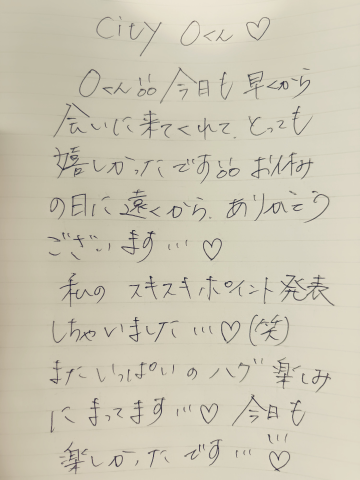 City Oくん♡
Oくん!!今日も早くから
会いに来てくれて、とっても
嬉しかったです!!お休み
の日に遠くから、ありがとう
ございます…♡
私のスキスキポイント発表
しちゃいました…♡(笑)
またいっぱいのハグ楽しみ
にまってます…♡今日も
楽しかったです…♡